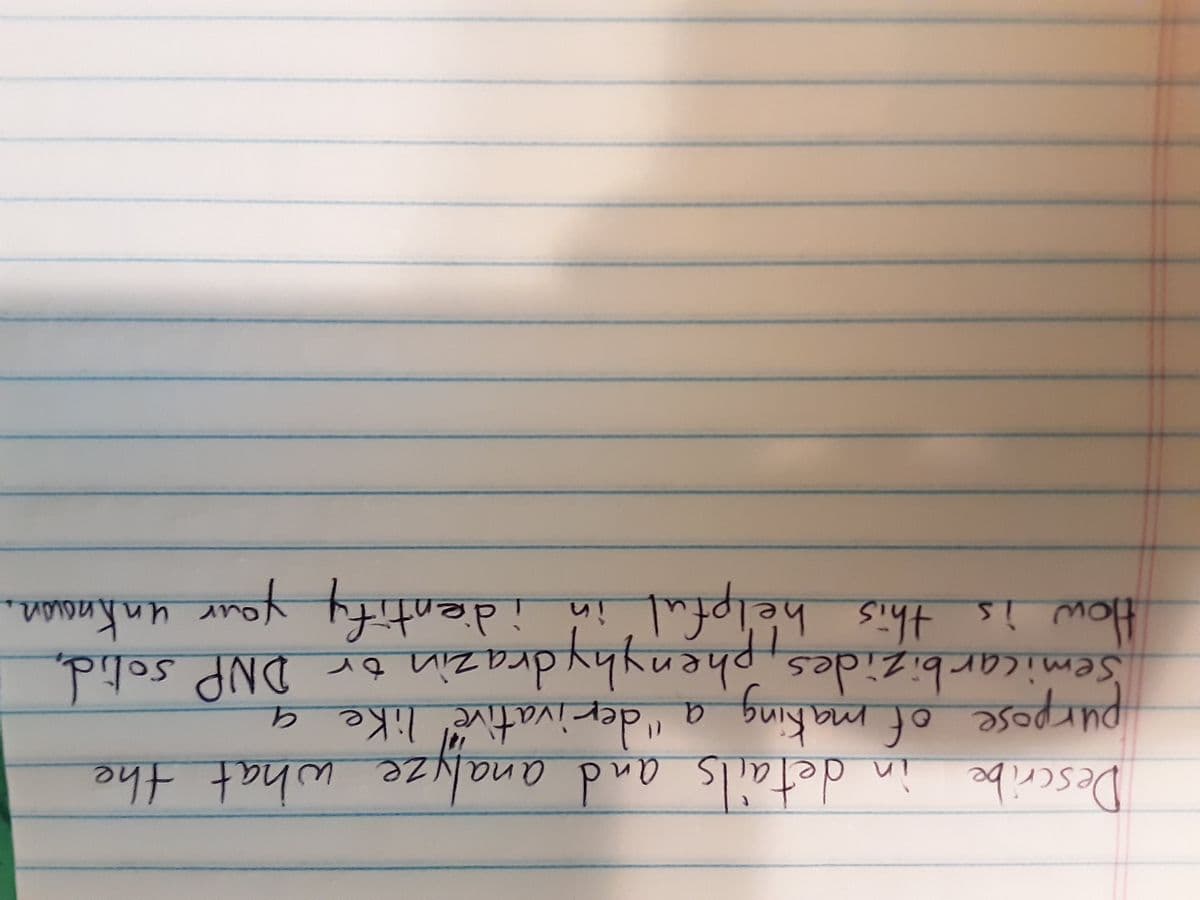 Describe in details and analyze what the
purpose of making a "derivative" like a
semicarbizides, phenyhydrazin or DNP solid,
How is this helpful in identify your unknown.